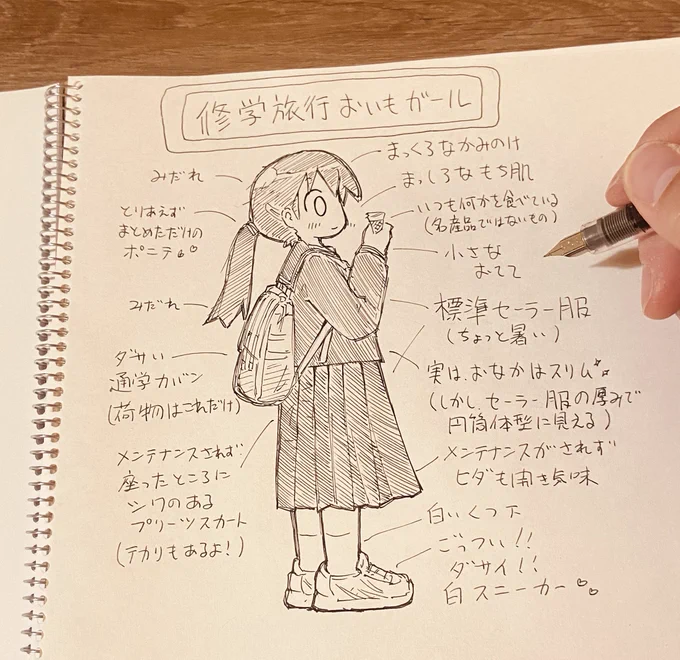 修学旅行おいもガール
まっくろなかみのけ
みだれ
まっしろなもち肌
とりあえず
まとめただけの
ポニテ
いつも何かを食べている
(名産品ではないもの)
小さな
おてて
みだれ
標準セーラー服
(ちょっと暑い)
ダサい
通学カバン
(荷物はこれだけ)
実は、おなかはスリム
(しかし、セーラー服の厚みで
円筒体型に見える)
メンテナンスされず
座ったところに
シワのある
プリーツスカート
(テカリもあるよ!)
メンテナンスがされず
ヒダも開き気味
白いくつ下
ごっつい!!
ダサイ!!
白スニーカー